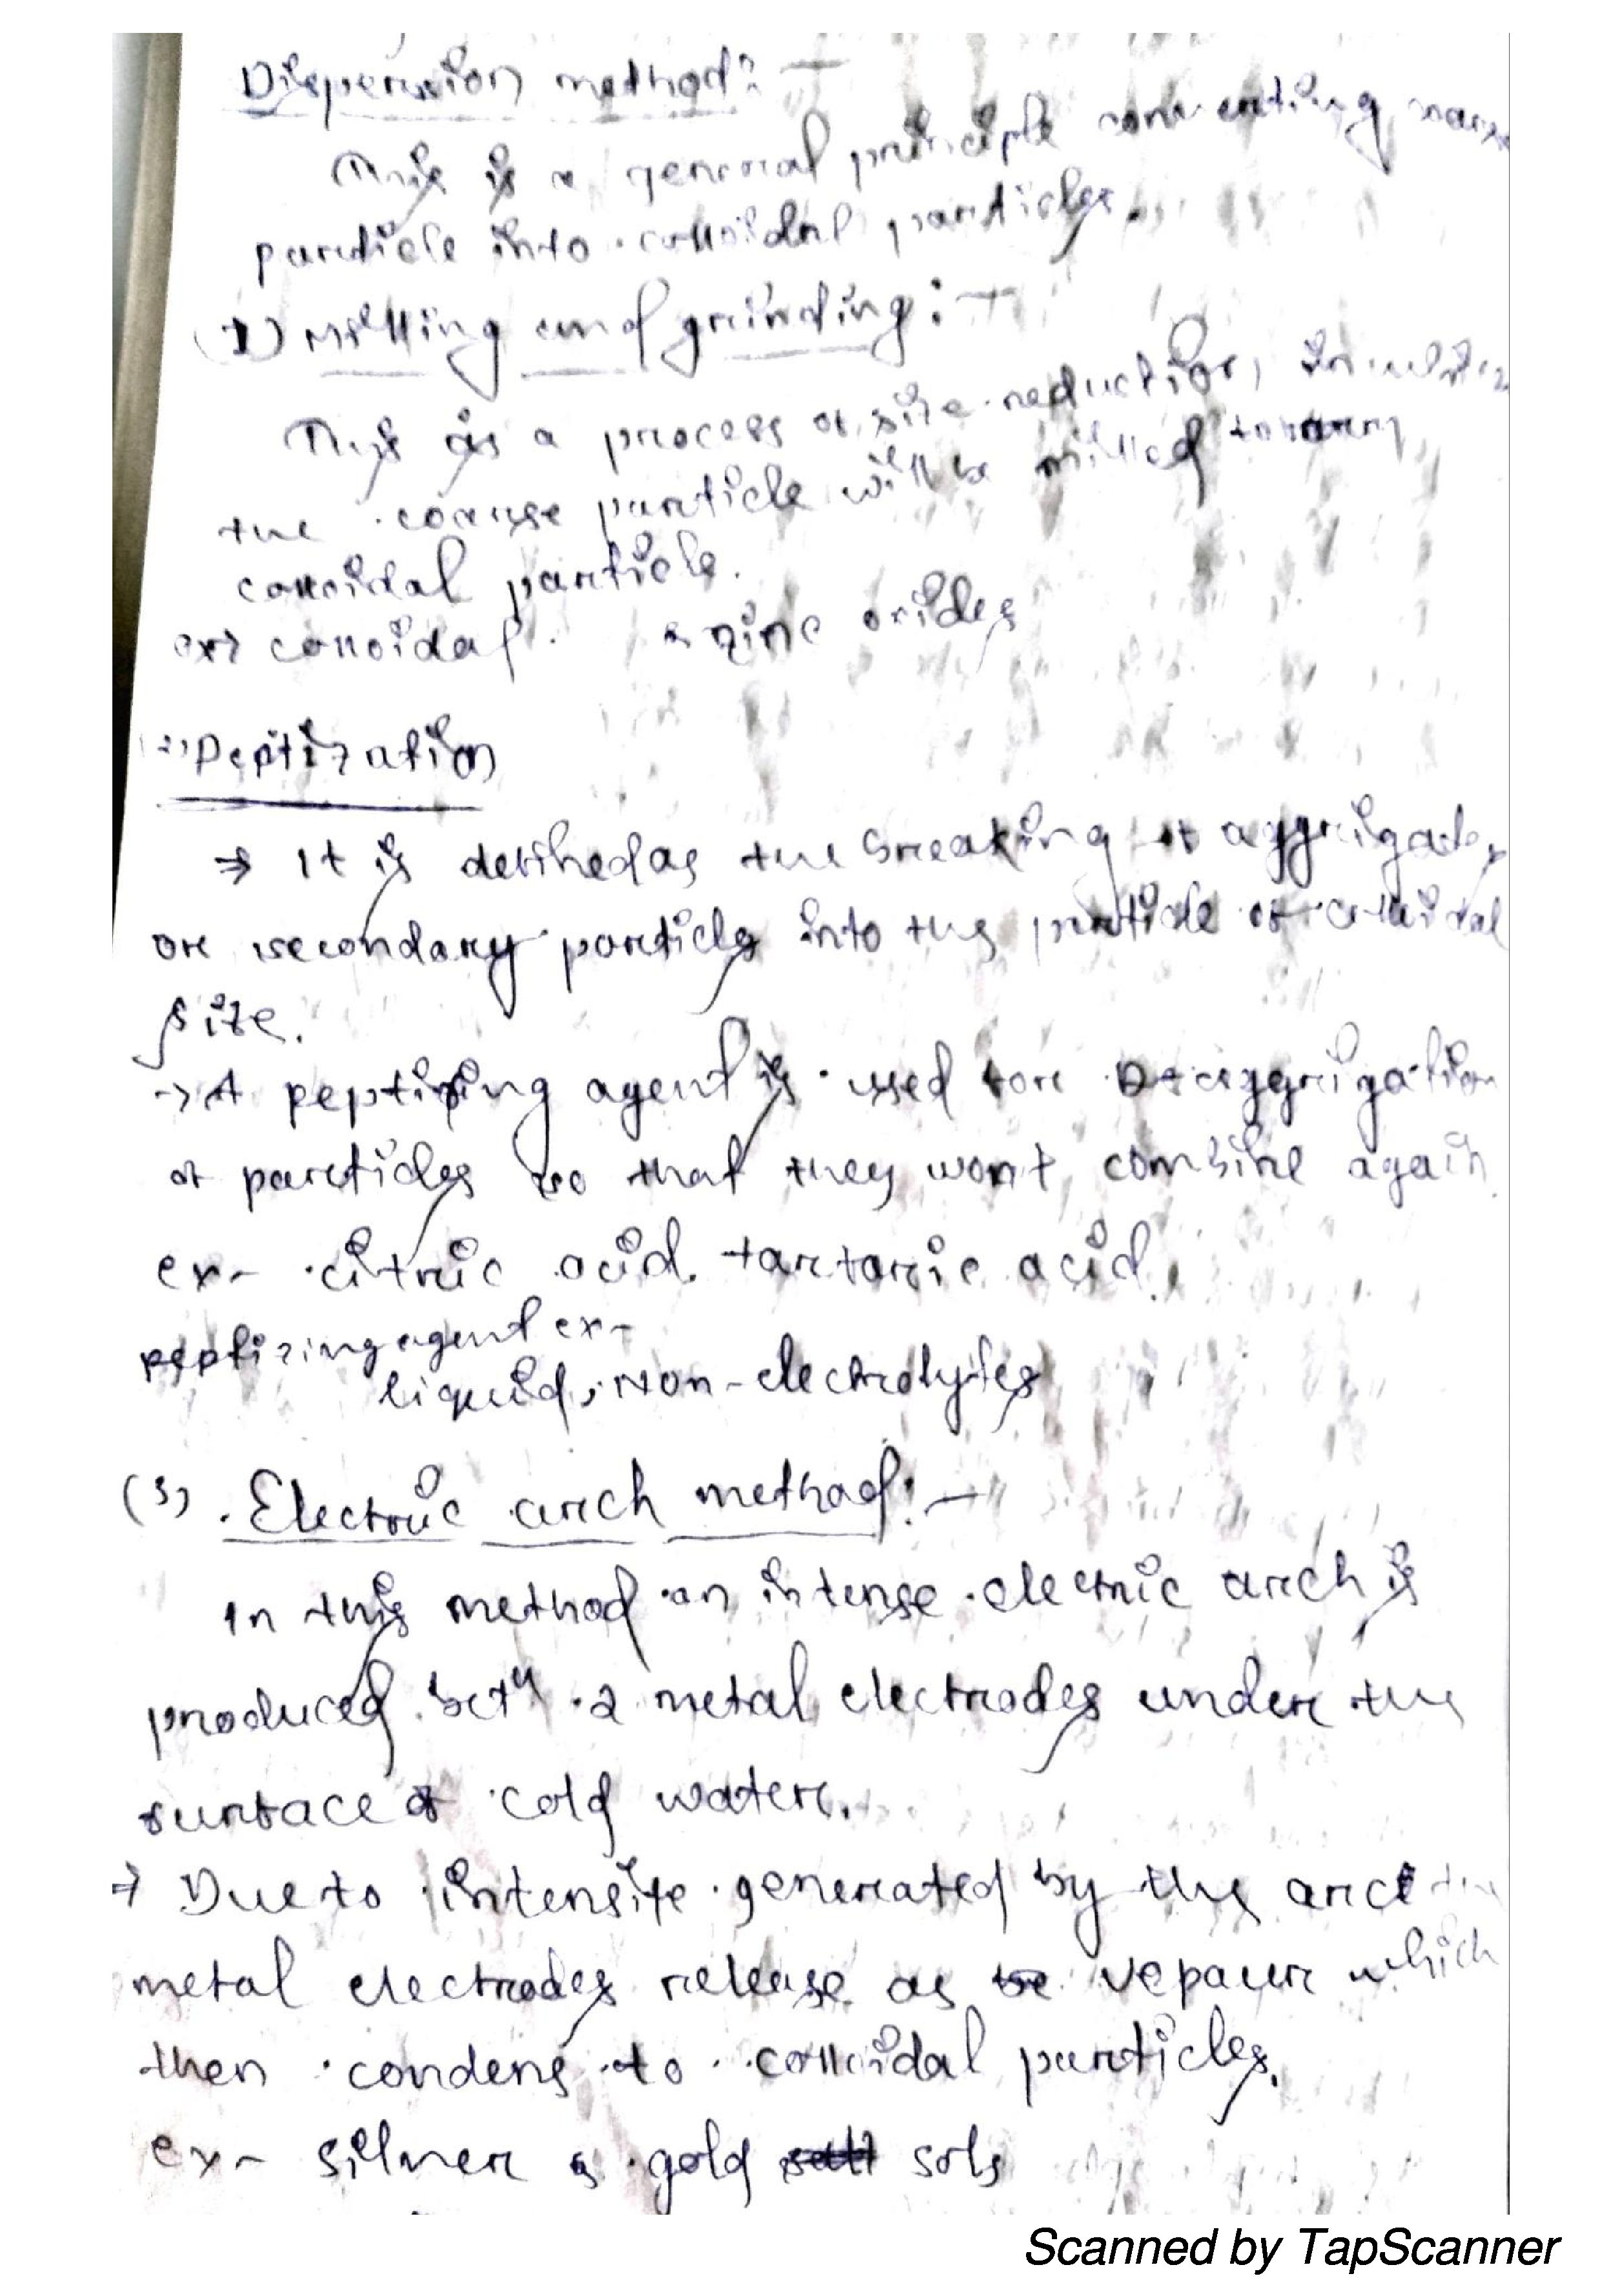 Dispersion method :-
This is a general principle converting
particle into colloidal particles.
(1) Milling and grinding :-
This is a process of size reduction, in
the coarse particle will be milled to
colloidal particle.
ex→ colloidal zinc oxides
Peptization
⇒ It is defined as the breaking of aggrigates
or secondary particles into the particle of colloidal
size.
→ A peptizing agent is used for Deaggrigation
of particles so that they won't combine again
ex- citric acid. tartaric acid.
peptizing agent ex-
liquid, Non-electrolytes
(3) Electric arch method :-
In this method an intense electric arch is
produced betn 2 metal electrodes under the
surface of cold water.
⇒ Due to intensite generated by the arc
metal electrodes release as vepaur which
then condens to colloidal particles.
ex- silver & gold sols
Scanned by TapScanner